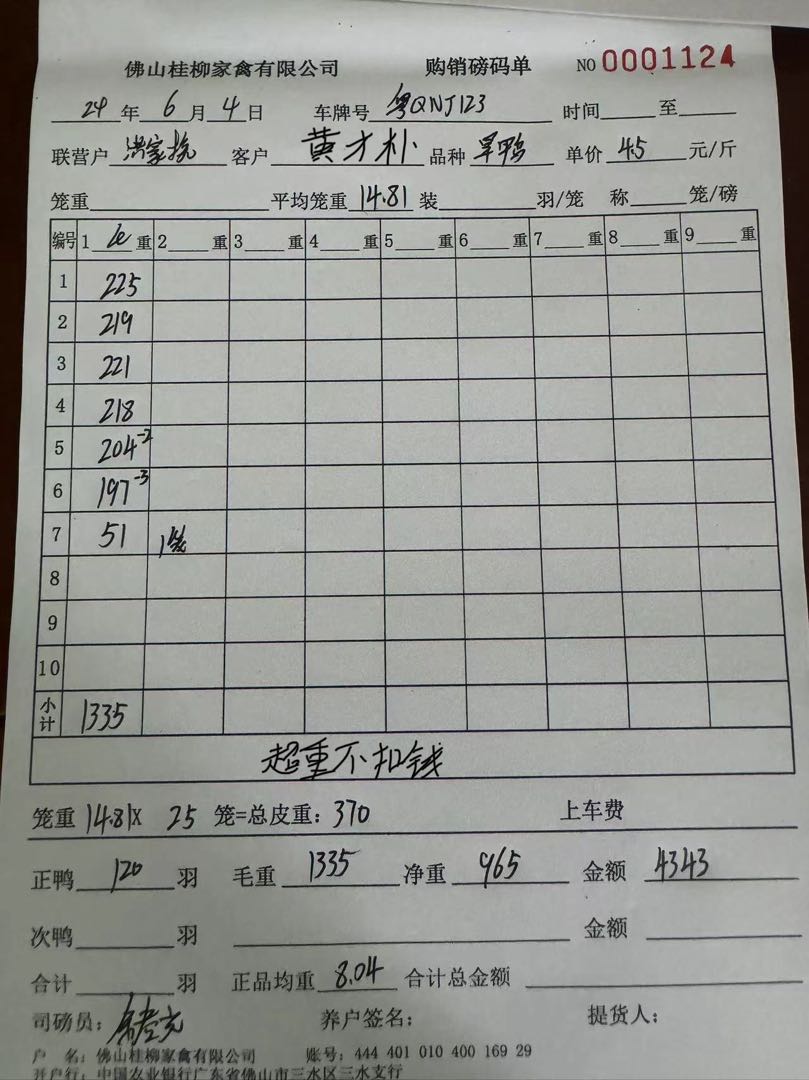 佛山桂柳家禽有限公司 购销磅码单 NO 0001124
24 年 6 月 4 日 车牌号 粤QNJ123 时间 至
联营户 客户 黄才朴 品种 旱鸭 单价 4.5 元/斤
笼重 平均笼重 14.81 装 羽/笼 称 笼/磅
编号 1 重 2 重 3 重 4 重 5 重 6 重 7 重 8 重 9 重
1 225
2 219
3 221
4 218
5 204 -2
6 197 -3
7 51 1笼
8
9
10
小计 1335
超重不扣钱
笼重 14.81 X 25 笼=总皮重: 370 上车费
正鸭 120 羽 毛重 1335 净重 965 金额 4343
次鸭 羽 金额
合计 羽 正品均重 8.04 合计总金额
司磅员: 养户签名: 提货人:
户 名: 佛山桂柳家禽有限公司 账号: 444 401 010 400 169 29
开户行: 中国农业银行广东省佛山市三水区三水支行